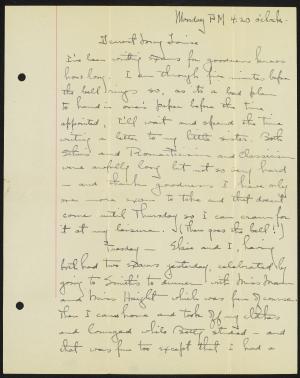 Monday P.M. 4:20 o'clock.
Dearest Louise
I've been writing exams for goodness knows
how long. I am through five minutes before
the bell rings so, as its a bad plan
to hand in one's paper before the time
appointed, I'll wait and spend the time
writing a letter to my little sister. Both
Ethics and Romanticism and Classicism
were awfully long but not so very hard
– and thank goodness I have only
one more exam to take and that doesn't
come until Thursday so I can cram for
it at my leisure. (There goes the bell!)
Tuesday – Elsie and I, having
both had two exams yesterday, celebrated by
going to Smith's to dinner with Miss
and Miss Haight which was fun of course.
Then I came home and took off my clothes
and lounged while Betty studied – and
that was fun too except that I had a